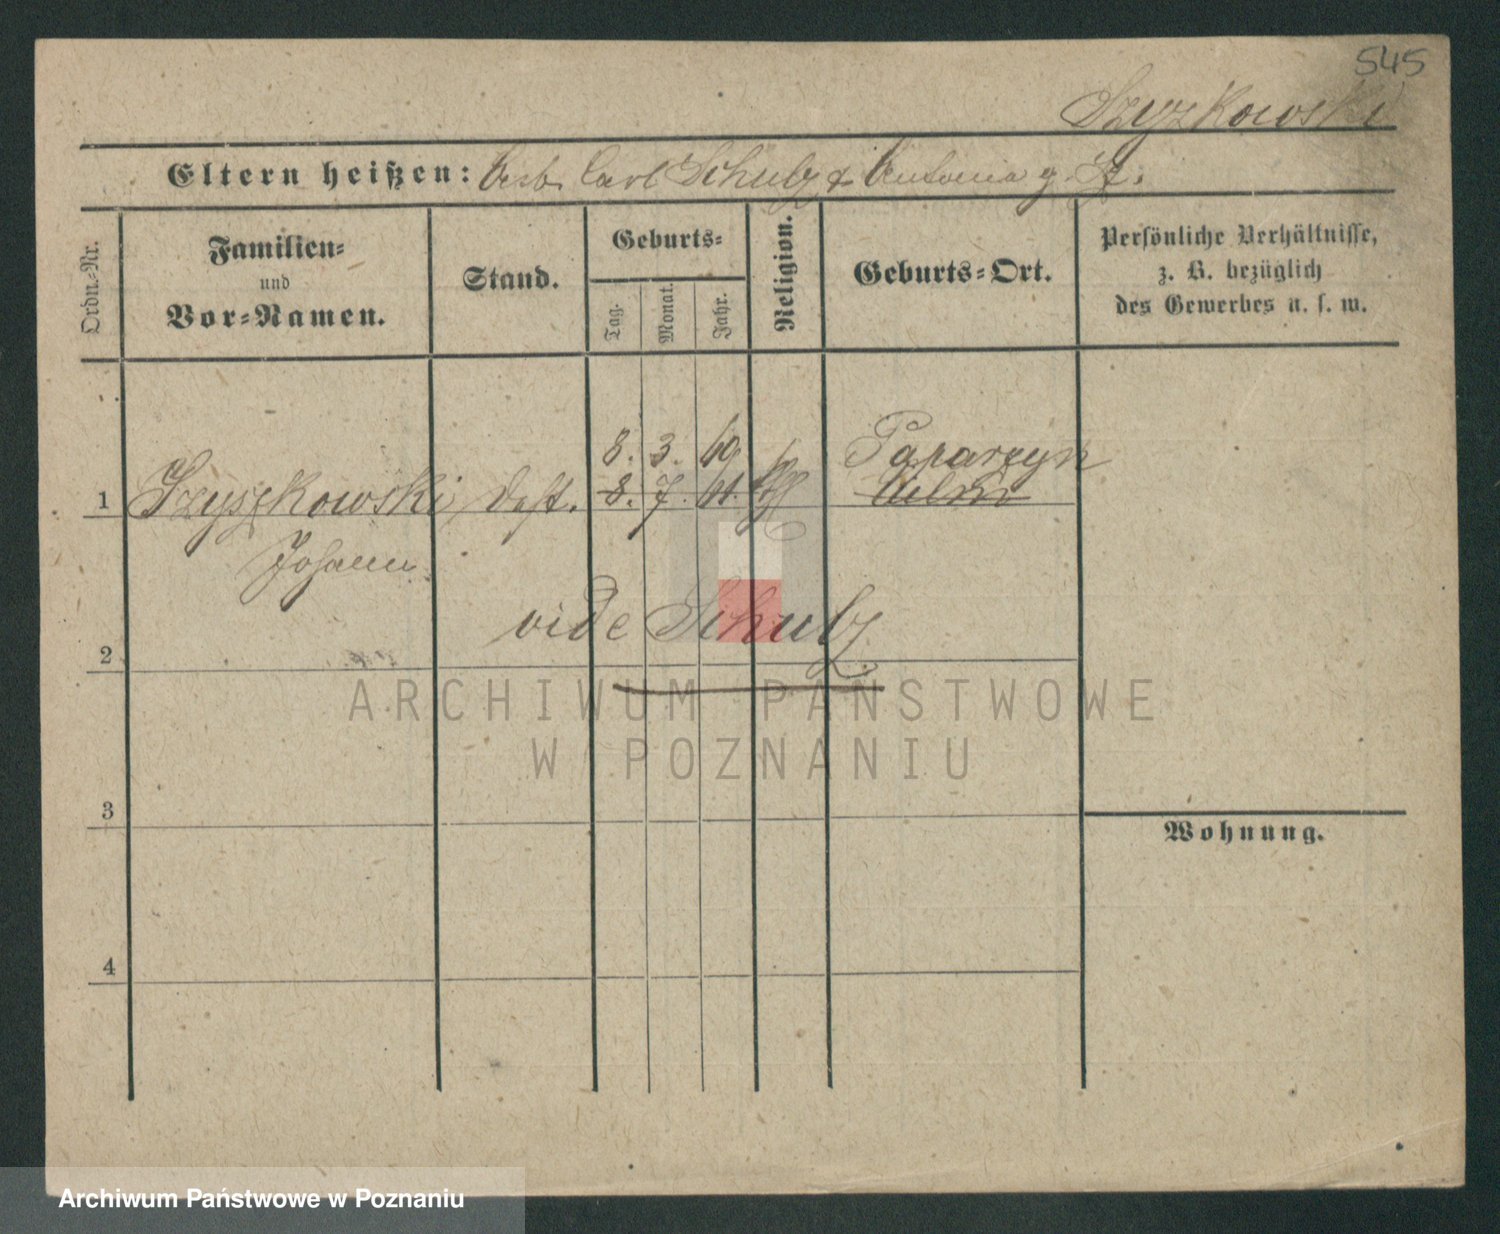 545
Szyzkowski
Eltern heißen: Carl Schulz & Antonia g. Sz.
Ordn.-Nr.
Familien-
und
Vor-Namen.
Stand.
Geburts-
Tag.
Monat.
Jahr.
Religion.
Geburts-Ort.
Persönliche Verhältnisse,
z. B. bezüglich
des Gewerbes u. s. w.
8. 3. 60. Paparzyn
1 Szyszkowski 8. 7. 61.
Johann
vide Schulz
2
ARCHIWUM PAŃSTWOWE
W POZNANIU
3
Wohnung.
4
Archiwum Państwowe w Poznaniu